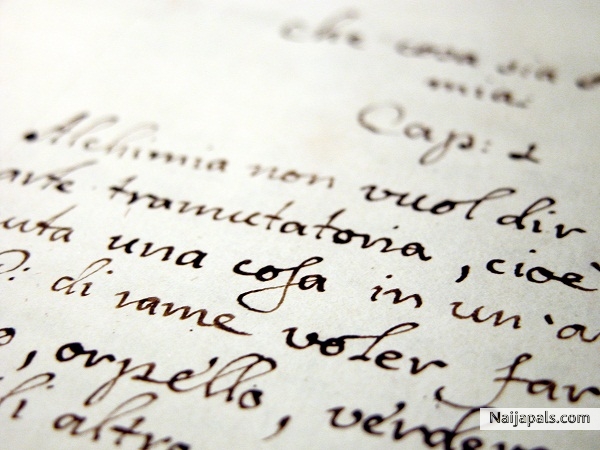 che cosa sia
mia.
Cap: 1
Alchimia non vuol dir
arte tramutatoria, cioè
uta una cosa in un'a
di rame voler far
o, orpéllo, vérdera
li altro
Naijapals.com